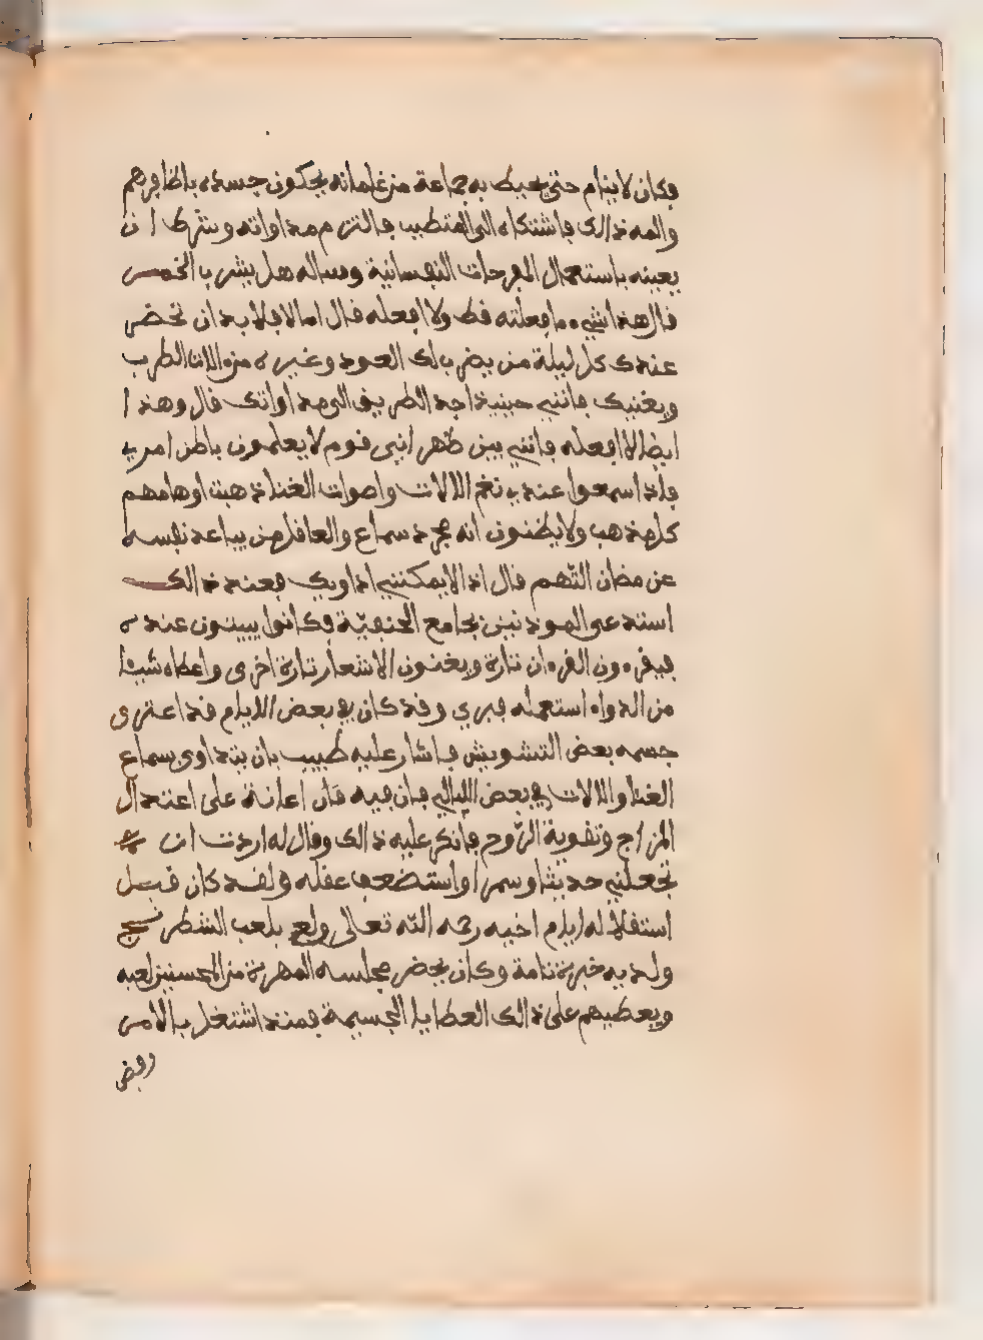 فكان لا ينام حتى يحيط به جماعة من غلمانه يحكون جسده باظافرهم
والمه ذالك فاشتكاه الى المتطبب فالتزم مداواته وشرط ان
يعينه باستعمال المفرحات النفسانية وساله هل يشرب الخمر
فال هذا شيء ما فعلته فط ولا افعله فال اما لا فلا بد ان تحضر
عندك كل ليلة من يضرب لك العود وغيره من الات الطرب
ويغنيك فانني حينيذ اجد الطريف الى مداواتك فال وهذا
ايضا لا افعله فانني بين ظهراني فوم لا يعلمون باطن امري
فاذا سمعوا عندي نغم الالات واصوات الغنا ذهبت اوهامهم
كل مذهب ولا يظنون انه مجرد سماع والعافل من يباعد نفسه
عن مضان التهم فال اذا لا يمكنني اداويك فعند ذالك
استدعى الموذنين بجامع الحنفية فكانوا يبيتون عنده
فيفرءون الفرءان تارة ويغنون الاشعار تارة اخرى واعطاه شيئا
من الدواء استعمله فبري وفد كان في بعض الايام فد اعترى
جسمه بعض التشويش فاشار عليه طبيب بان يتداوى بسماع
الغنا والالات في بعض الليالي فان فيه فال اعانة على اعتدال
المزاج وتفوية الروح فانكر عليه ذالك وفال له اردت ان
تجعلني حديثا وسمرا واستضعف عفله ولفد كان فبل
استفلاله ايام اخيه رحمه الله تعالى ولع بلعب الشطرنج
وله به خبرة تامة وكان يحضر مجلسه المهرة من المحسنين لعبه
ويعطيهم على ذالك العطايا الجسيمة فمنذ اشتغل بالامر
رفض